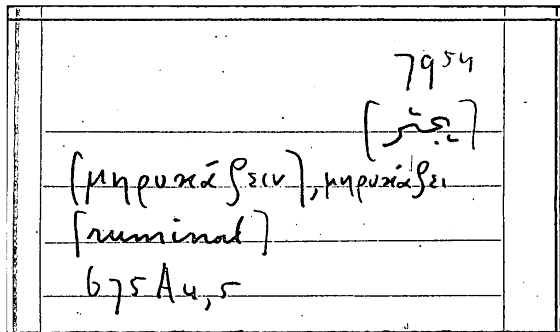 7954
[يجتر]
[μηρυκάζειν], μηρυκάζει
[ruminat]
675 A4,5